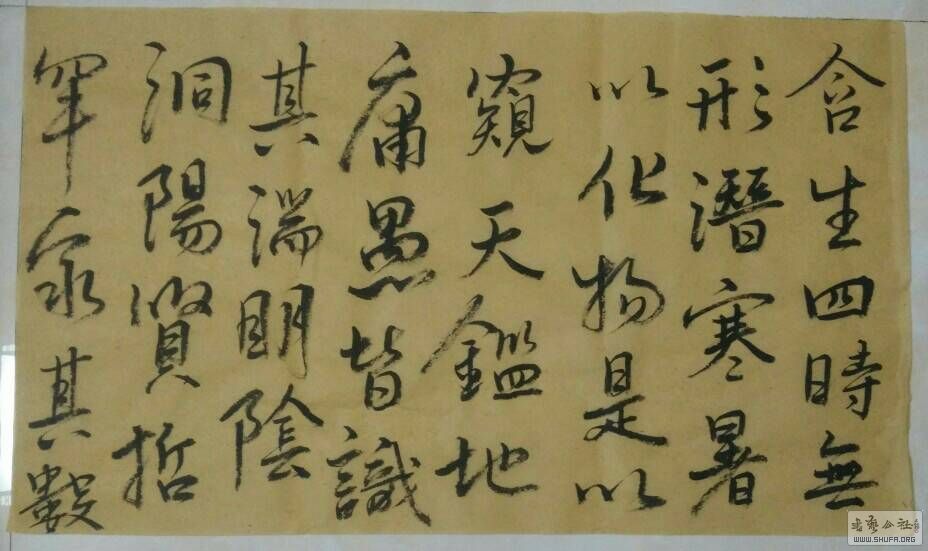 含生四時無
形潛寒暑
以化物是以
窺天鑑地
庸愚皆識
其端明陰
洞陽賢哲
罕窮其數
書藝公社
WWW.SHUFA.ORG